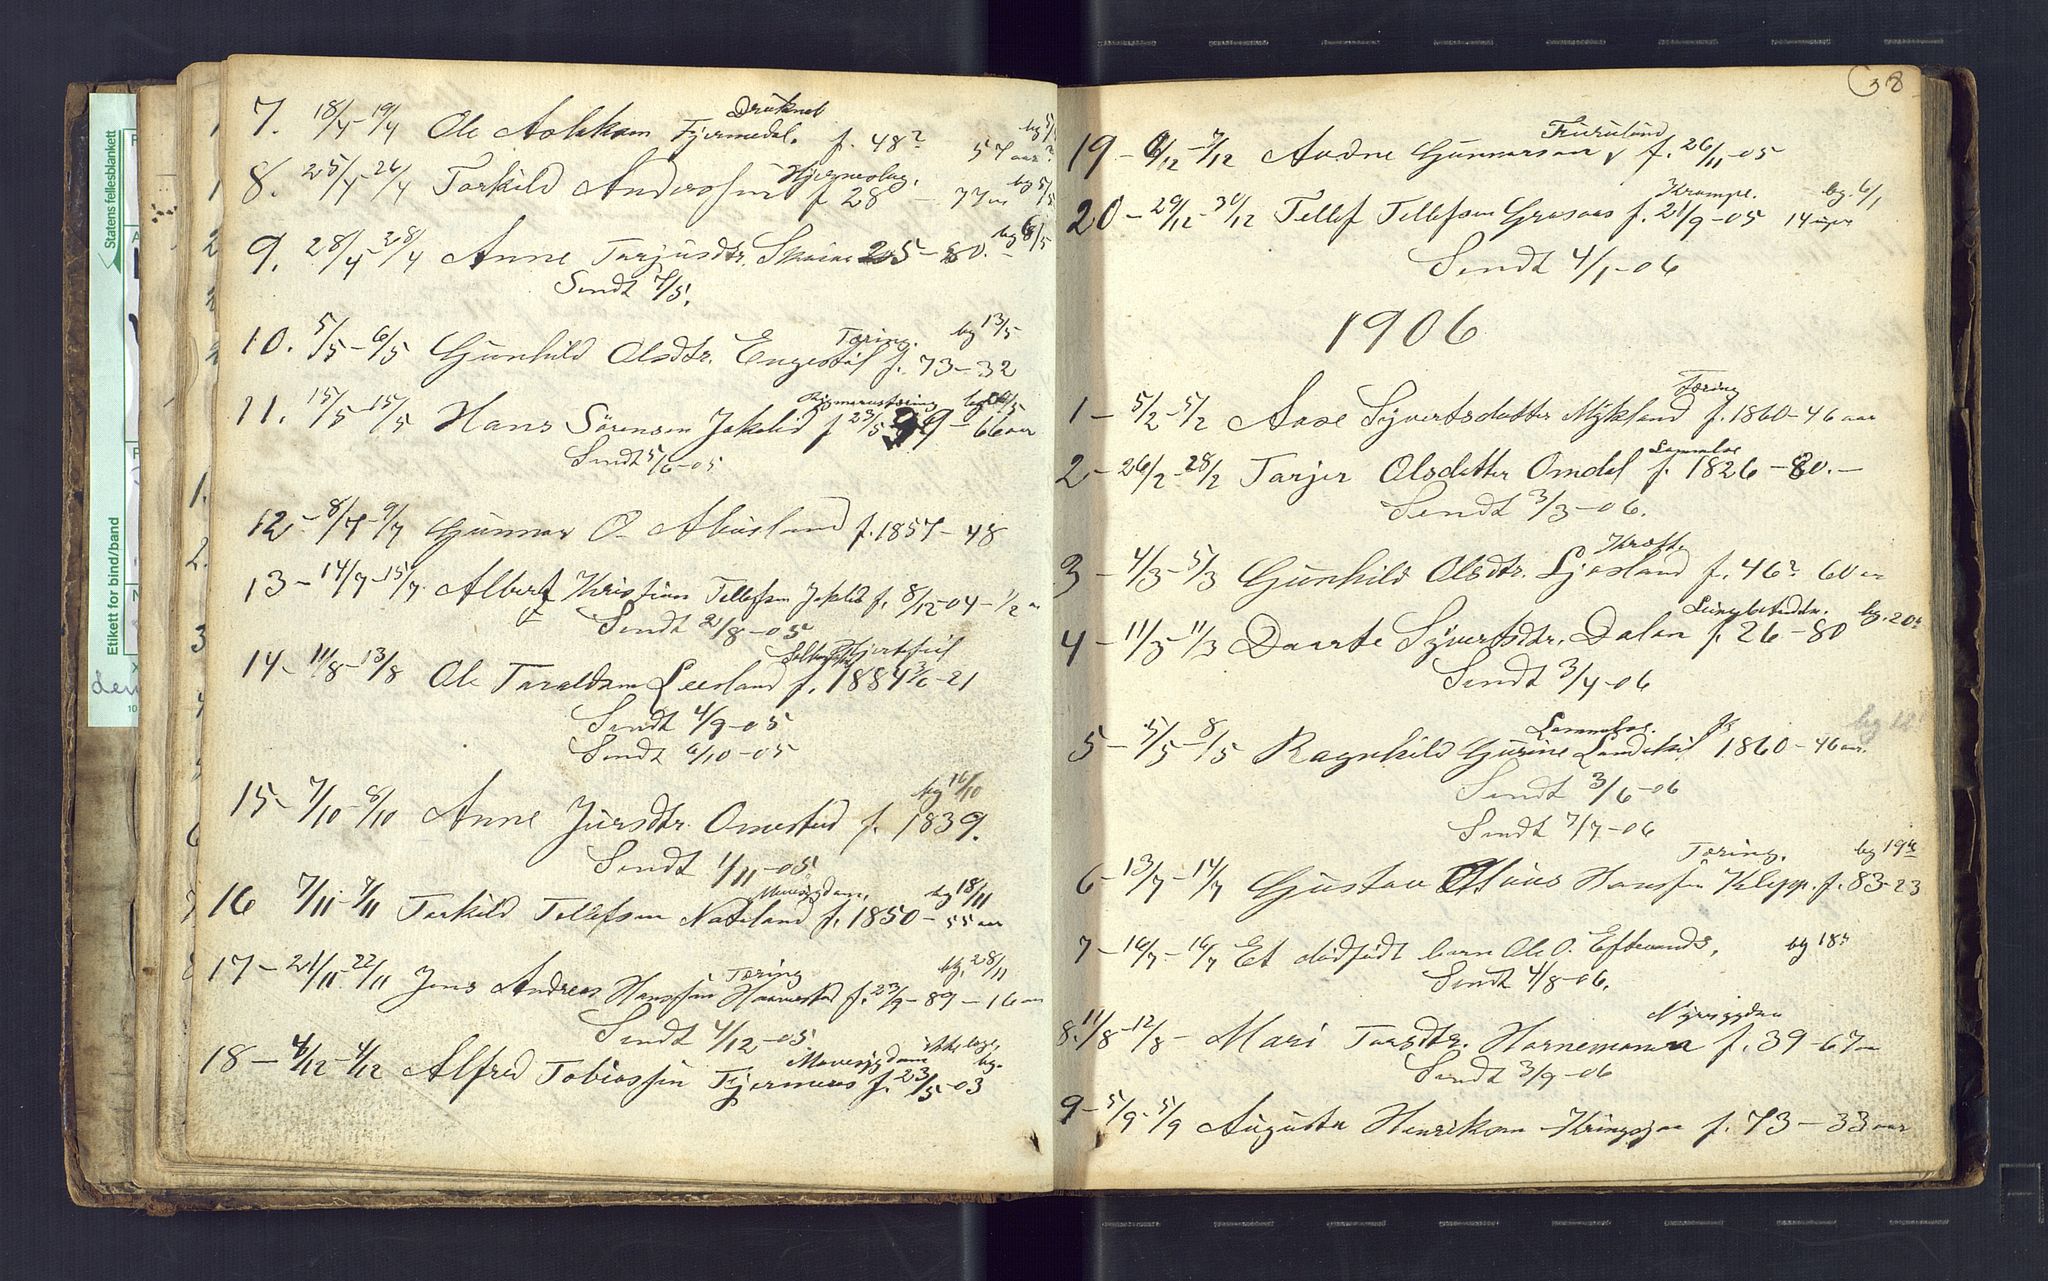 Druknet
7. 18/4 - 19/4 Ole Aslaksen Fjermedal. f. 48? 57 aar?
8. 25/4 - 26/4 Torkild Anderssen Hjerneslag. f 28 - 77 aar bg 5/5
9. 28/4 - 28/4 Anne Tarjusdtr. 25 - 80. bg 6/5
Sendt 7/5.
Tæring. bg 13/5
10. 5/5 - 6/5 Gunhild Olsdtr. Engestøl f. 73 - 32
11. 15/5 - 15/5 Hans Sörensen Jakelid f 23/5 39 - 66 aar
Sendt 5/6 - 05
12 - 8/7 - 9/7 Gunnar O. Abusland f. 1857 - 48
13 - 14/7 - 15/7 Albert Kristian Tellefsen Jaklid f. 8/12 - 04 - 1/2 a
Sendt 2/8 - 05
Hjertefeil
14 - 11/8 - 13/8 Ole Taraldsen Leesland f. 1884 3/6 - 21
Sendt 4/9 - 05
Sendt 6/10 - 05
bg 16/10
15 - 7/10 - 8/10 Anne Jursdtr. Omestad f. 1839.
Sendt 1/11 - 05.
bg 18/11
16 7/11 - 7/11 Torkild Tellefsen Nateland f. 1850 - 55 aar
Tæring bg. 28/11
17 - 21/11 - 22/11 Jens Andreas Hanssen Haavestad f. 23/9 - 89 - 16 aar
Sendt 4/12 - 05.
Mavesygdom bg.
18 - 4/12 - 4/12 Alfred Tobiassen Fjermeros f. 23/5 - 03
38
Furulund
19 - 6/12 - 7/12 Audne Gunnarsen f. 26/11 - 05
Krampe. bg. 6/1
20 - 29/12 - 30/12 Tellef Tellefsen Grosaas f. 21/9 - 05 14 uger
Sendt 4/1 - 06
1906
Tæring
1 - 5/2 - 5/2 Aase Syvertsdatter Mykland f. 1860 - 46 aar
Lammelse
2 - 26/2 - 28/2 Tarjer Olsdatter Omdal f. 1826 - 80. -
Sendt 3/3 - 06.
Kræft.
3 - 4/3 - 5/3 Gunhild Olsdtr. Ljosland f. 46? 60 aar
Lungebetændelse. bg. 20
4 - 11/3 - 11/3 Daarte Syvertsdtr. Dalen f. 26 - 80
Sendt 3/4 - 06
Lammelse. bg 12
5 - 5/5 - 8/5 Ragnhild Gurine Landskil f. 1860 - 46 aar.
Sendt 3/6 - 06
Sendt 7/7 - 06
Tæring. bg 19
6 - 13/7 - 14/7 Gustav Hanssen Klepp. f. 83 - 23
7 - 16/7 - 16/7 Et dødfødt barn Ole O. Eftevands. bg 18
Sendt 4/8 - 06.
Nyresygdom
8. 11/8 - 12/8 - Mari Tarsdtr. Hornemann f. 39 - 67 aar
Sendt 3/9 - 06
9 - 5/9 - 5/9 Augusta Henriksen Kringsjaa f. 73 - 33 aar
Etikett for bind/band
Statens fellesblankett